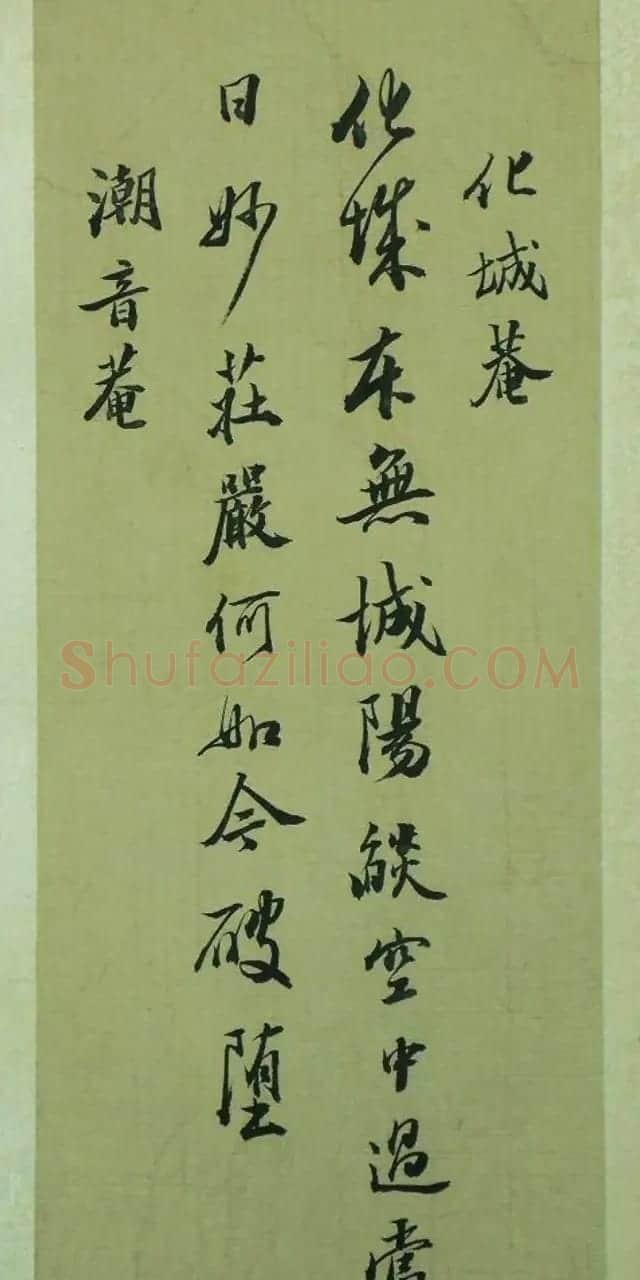 化城菴
化城本無城陽燄空中過當
日妙莊嚴何如今破墮
潮音菴
Shufaziliao.COM